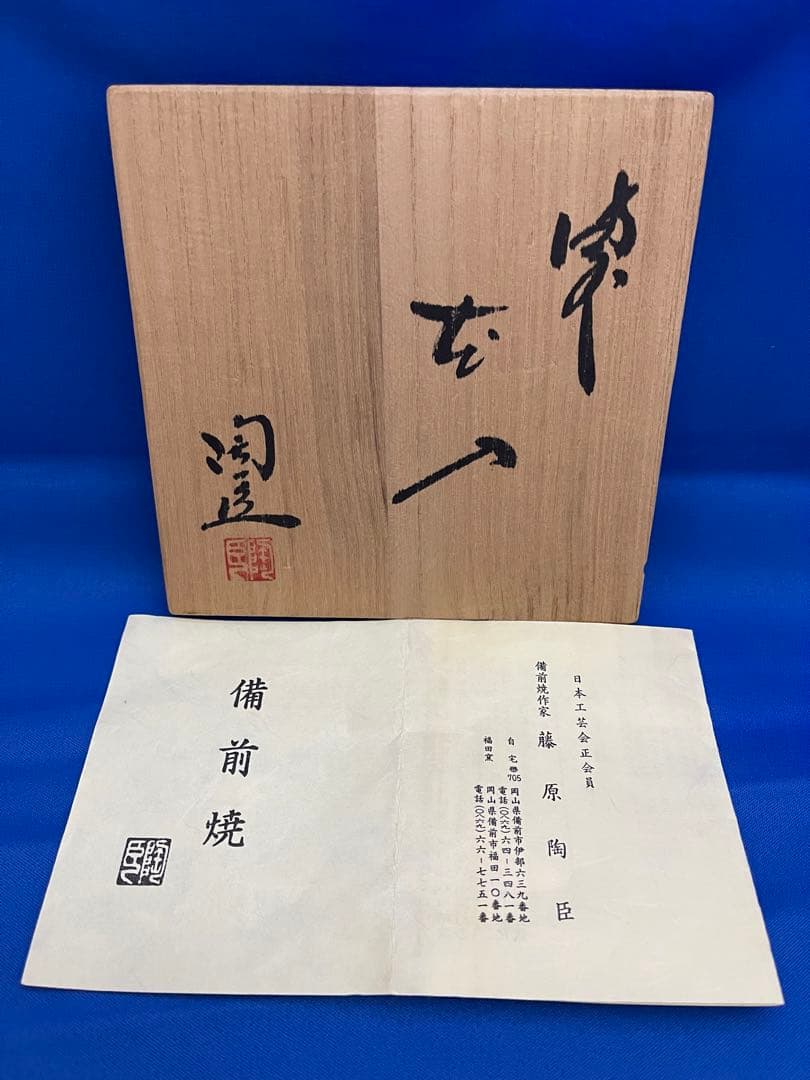 花入
陶臣
備前焼
日本工芸会正会員
備前焼作家 藤原陶臣
自宅 〒705 岡山県備前市伊部六三九番地
電話(〇八六九)六四-三四八一番
福田窯 岡山県備前市福田一〇番地
電話(〇八六九)六六-七七五一番
陶臣